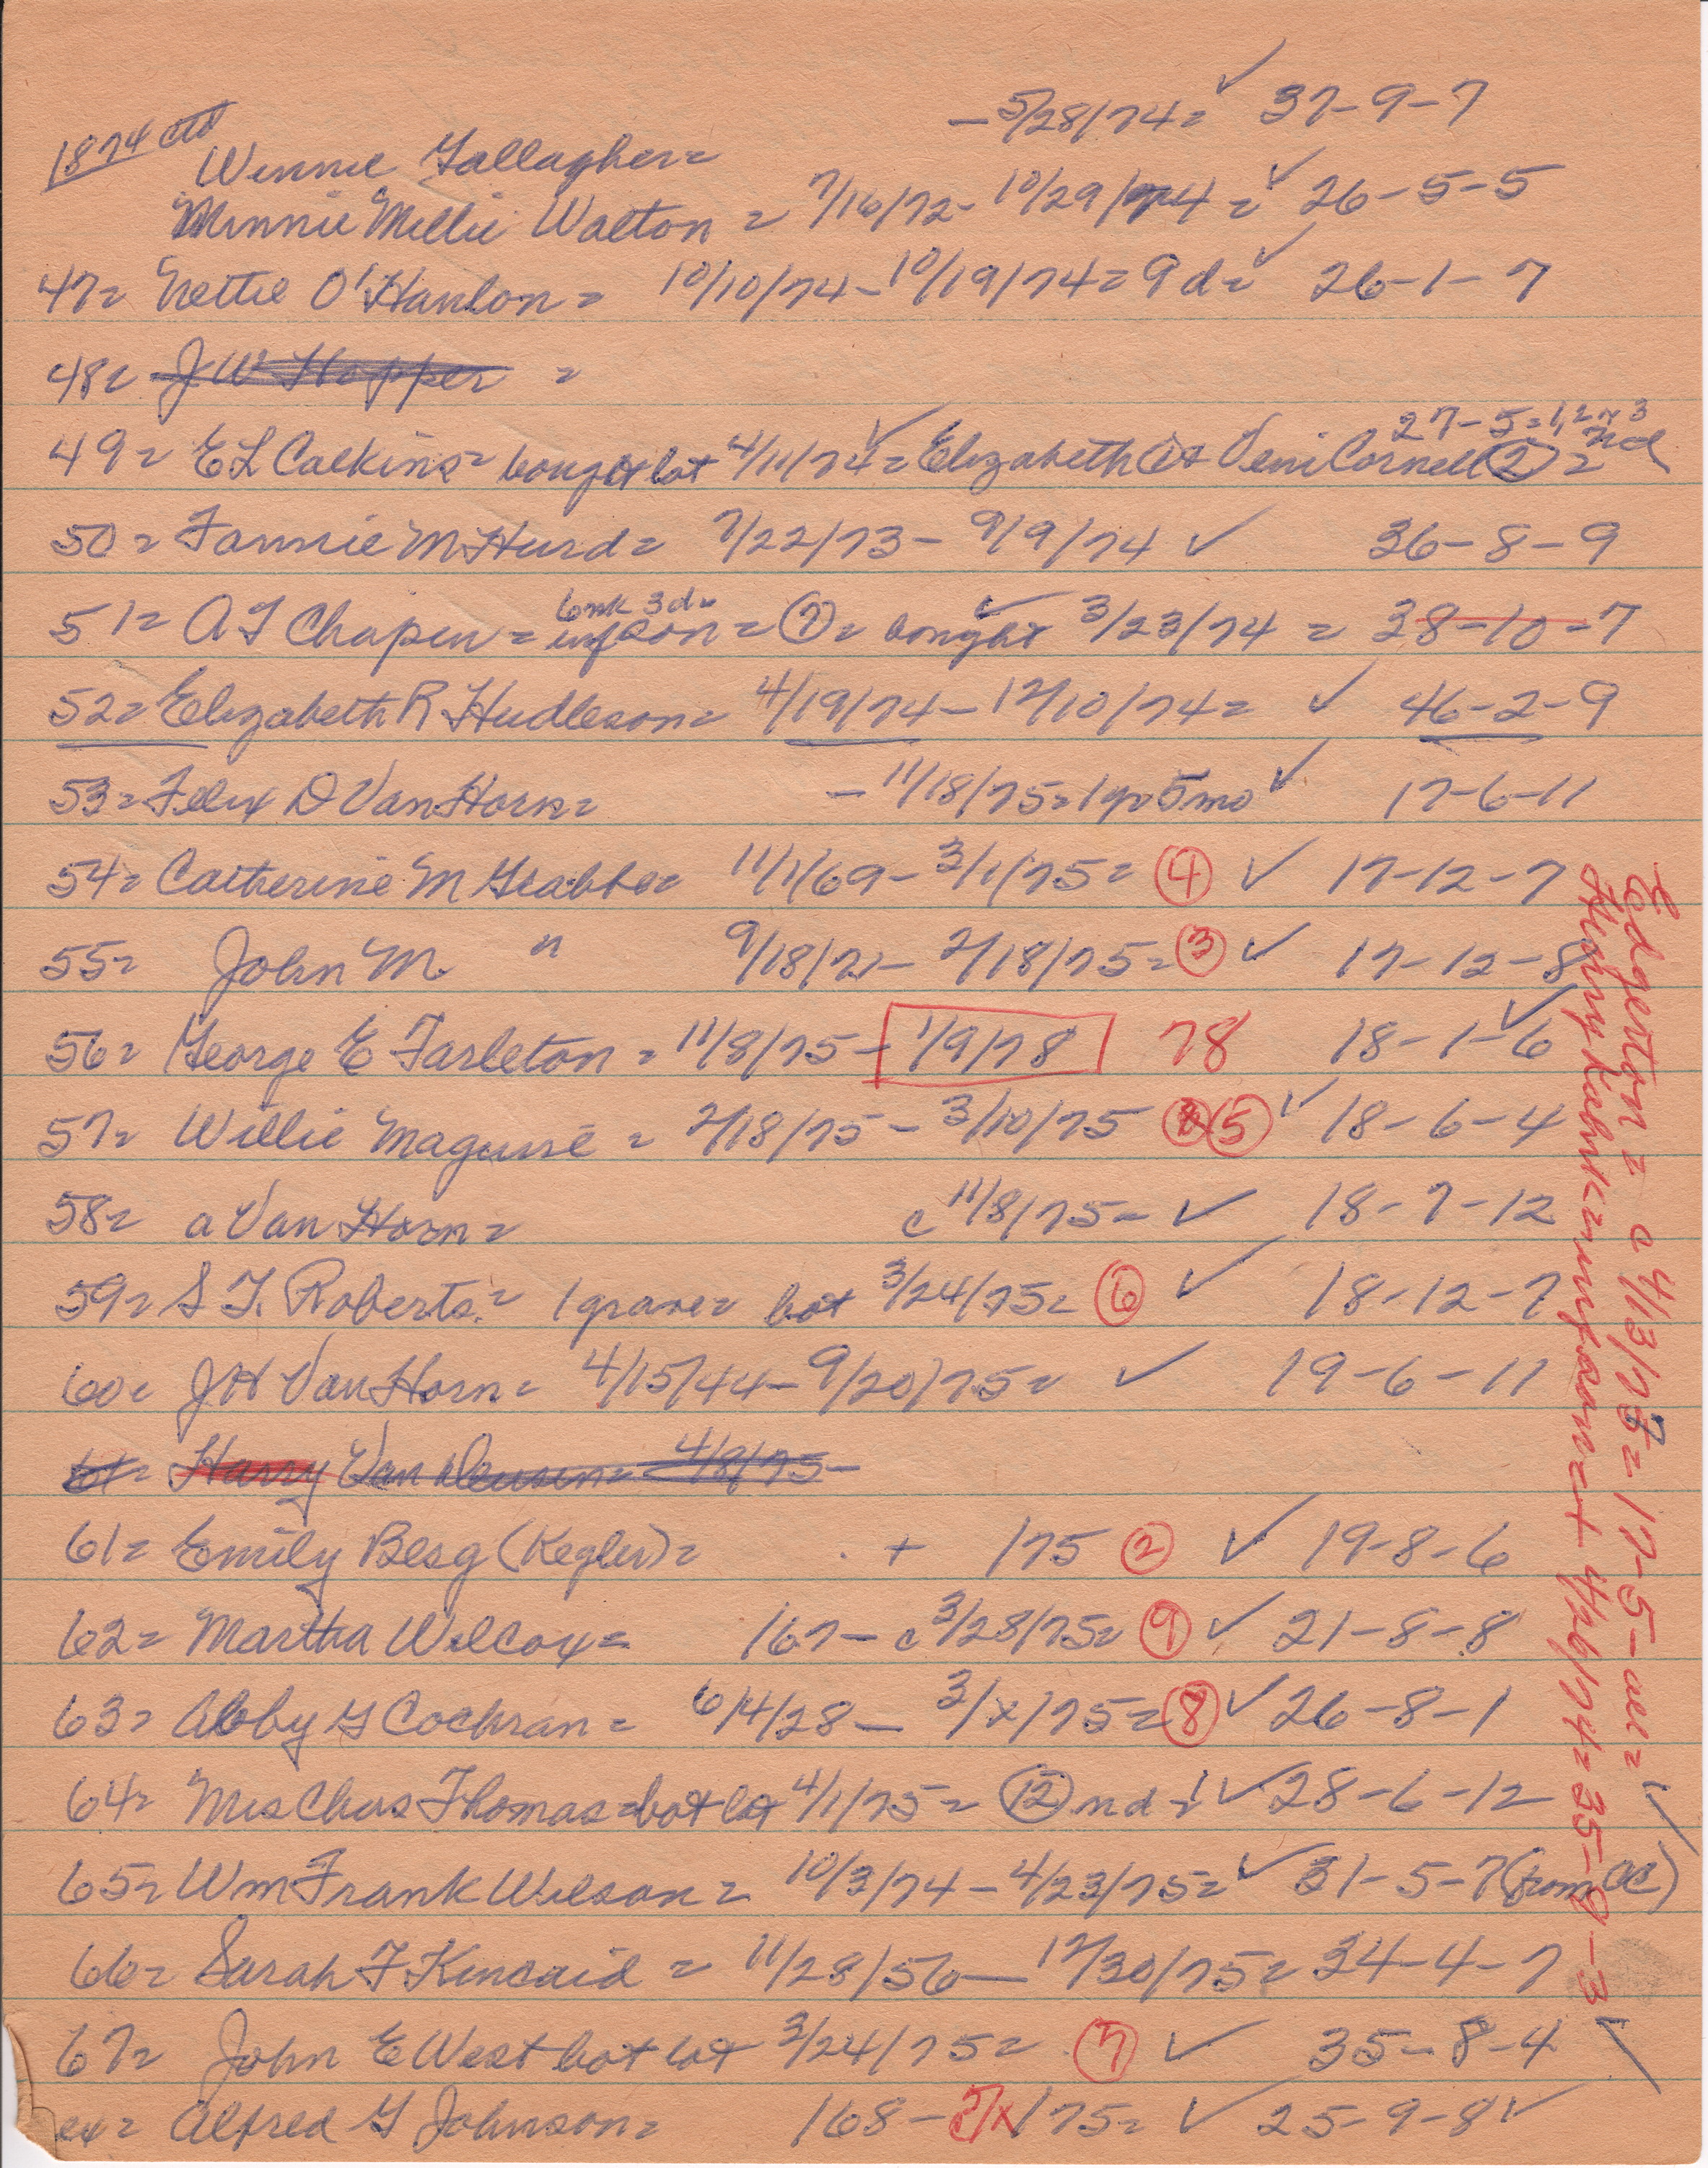 1874 ctd
Winnie Gallagher= - 5/28/74= ✓ 37-9-7
Minnie Millie Walton = 7/16/72- 10/29/74= ✓ 26-5-5
47= Nettie O'Hanlon= 10/10/74-10/19/74=9d= ✓ 26-1-7
48= J W Hopper =
27-5=1,2,3
49= E L Calkins= bought lot 4/11/74= ✓ Elizabeth Cornell (2)= nd
50= Fannie M Hurd= 7/22/73- 9/9/74 ✓ 36-8-9
6wk 3d=
51= A F Chapin= inf son= (7)= bought ✓ 3/23/74 = 38-10-7
52= Elizabeth R Hudleson= 4/19/74-12/10/74= ✓ 46-2-9
53= Felix D Van Horn= -11/18/75=1yr5mo ✓ 17-6-11
54= Catherine M Grabbe= 11/1/69-3/1/75= (4) ✓ 17-12-7
55= John M. " 9/18/71- 2/18/75= (3) ✓ 17-12-8
56= George E Tarleton= 11/8/75-1/9/78 78 18-1-6 ✓
57= Willie Maguire = 2/18/75- 3/10/75 (5) ✓ 18-6-4
58= a Van Horn= c 11/8/75- ✓ 18-7-12
59= S T. Roberts= 1 grave= bot 3/24/75= (6) ✓ 18-12-7
60= J H Van Horn= 4/15/44-9/20/75= ✓ 19-6-11
61= Harry Van Deusen= 4/8/75-
61= Emily Besg (Kegler)= + 175 (2) ✓ 19-8-6
62= Martha Wilcox= 167- c 3/28/75= (9) ✓ 21-8-8
63= Abby G Cochran= 6/4/28- 3/x/75= (8) ✓ 26-8-1
64= Mrs Chas Thomas=bot lot 4/1/75= (12) nd= ✓ 28-6-12
65= Wm Frank Wilson= 10/3/74-4/23/75= ✓ 31-5-7 (from OC)
66= Sarah F Kincaid = 11/28/56-12/30/75= 34-4-7
67= John E West bot lot 3/24/75= (7) ✓ 35-8-4
ex= Alfred G Johnson= 168- /x/75= ✓ 25-9-8 ✓
Edgerton= c 4/13/75= 17-5-
Henry = infant 4/26/74= 35-9-3 ✓